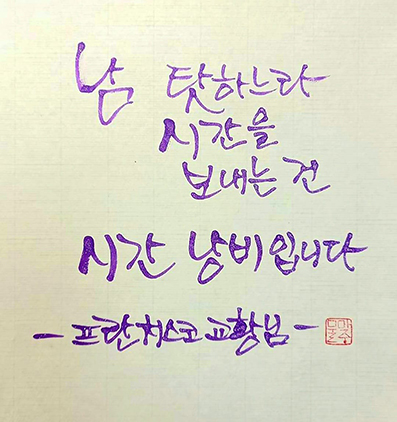 남 탓하느라
시간을
보내는 건
시간 낭비입니다
-프란체스코 교황님-